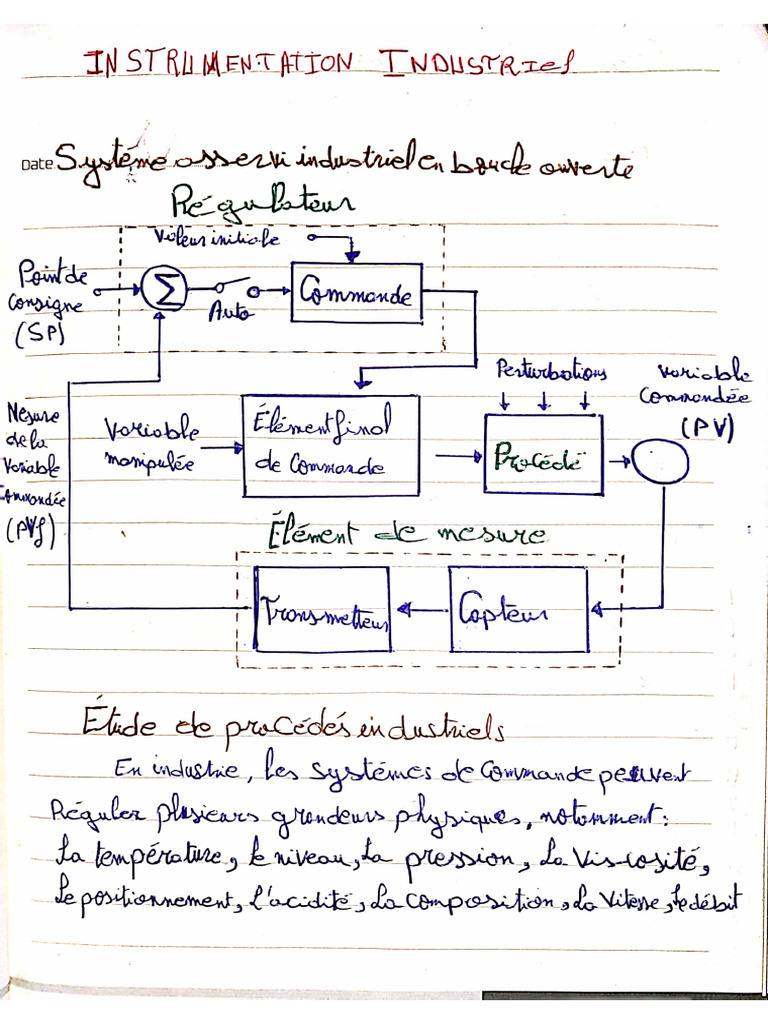 INSTRUMENTATION INDUSTRIEL
Date Systéme asservi industriel en boucle ouverte
Régulateur
Valeur initiale
Point de
Consigne
(SP)
Σ
Auto
Commande
Perturbations
Variable
Commandée
(PV)
Mesure
de la
Variable
Commandée
Variable
manipulée
Élément final
de Commande
Procédé
Élément de mesure
Transmetteur
Capteur
Étude de procédés industriels
En industrie, les systémes de Commande peuvent
Réguler plusieurs grandeurs physiques, notamment:
La température, le niveau, La pression, La Viscosité,
Le positionnement, L'acidité, La composition, La Vitesse, Le débit